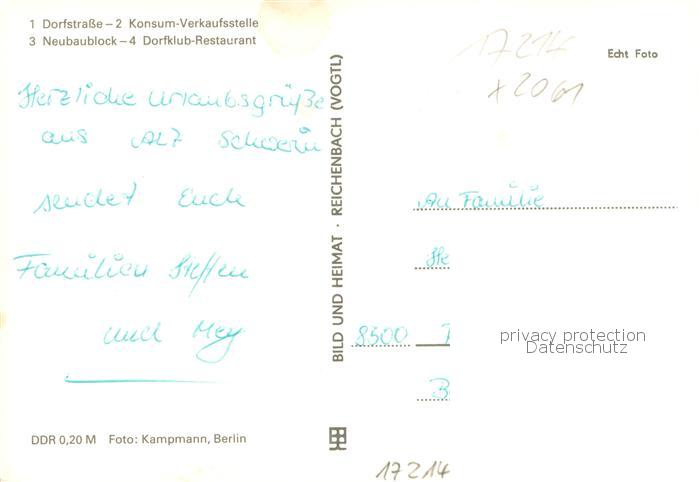 1 Dorfstraße – 2 Konsum-Verkaufsstelle
3 Neubaublock – 4 Dorfklub-Restaurant
Herzliche Urlaubsgrüße
aus Alt Schwerin
sendet Euch
Familien Steffen
und Mey
DDR 0,20 M Foto: Kampmann, Berlin
BILD UND HEIMAT · REICHENBACH (VOGTL)
17214
x2061
Echt Foto
An Familie
He
8300
B
privacy protection
Datenschutz
17214